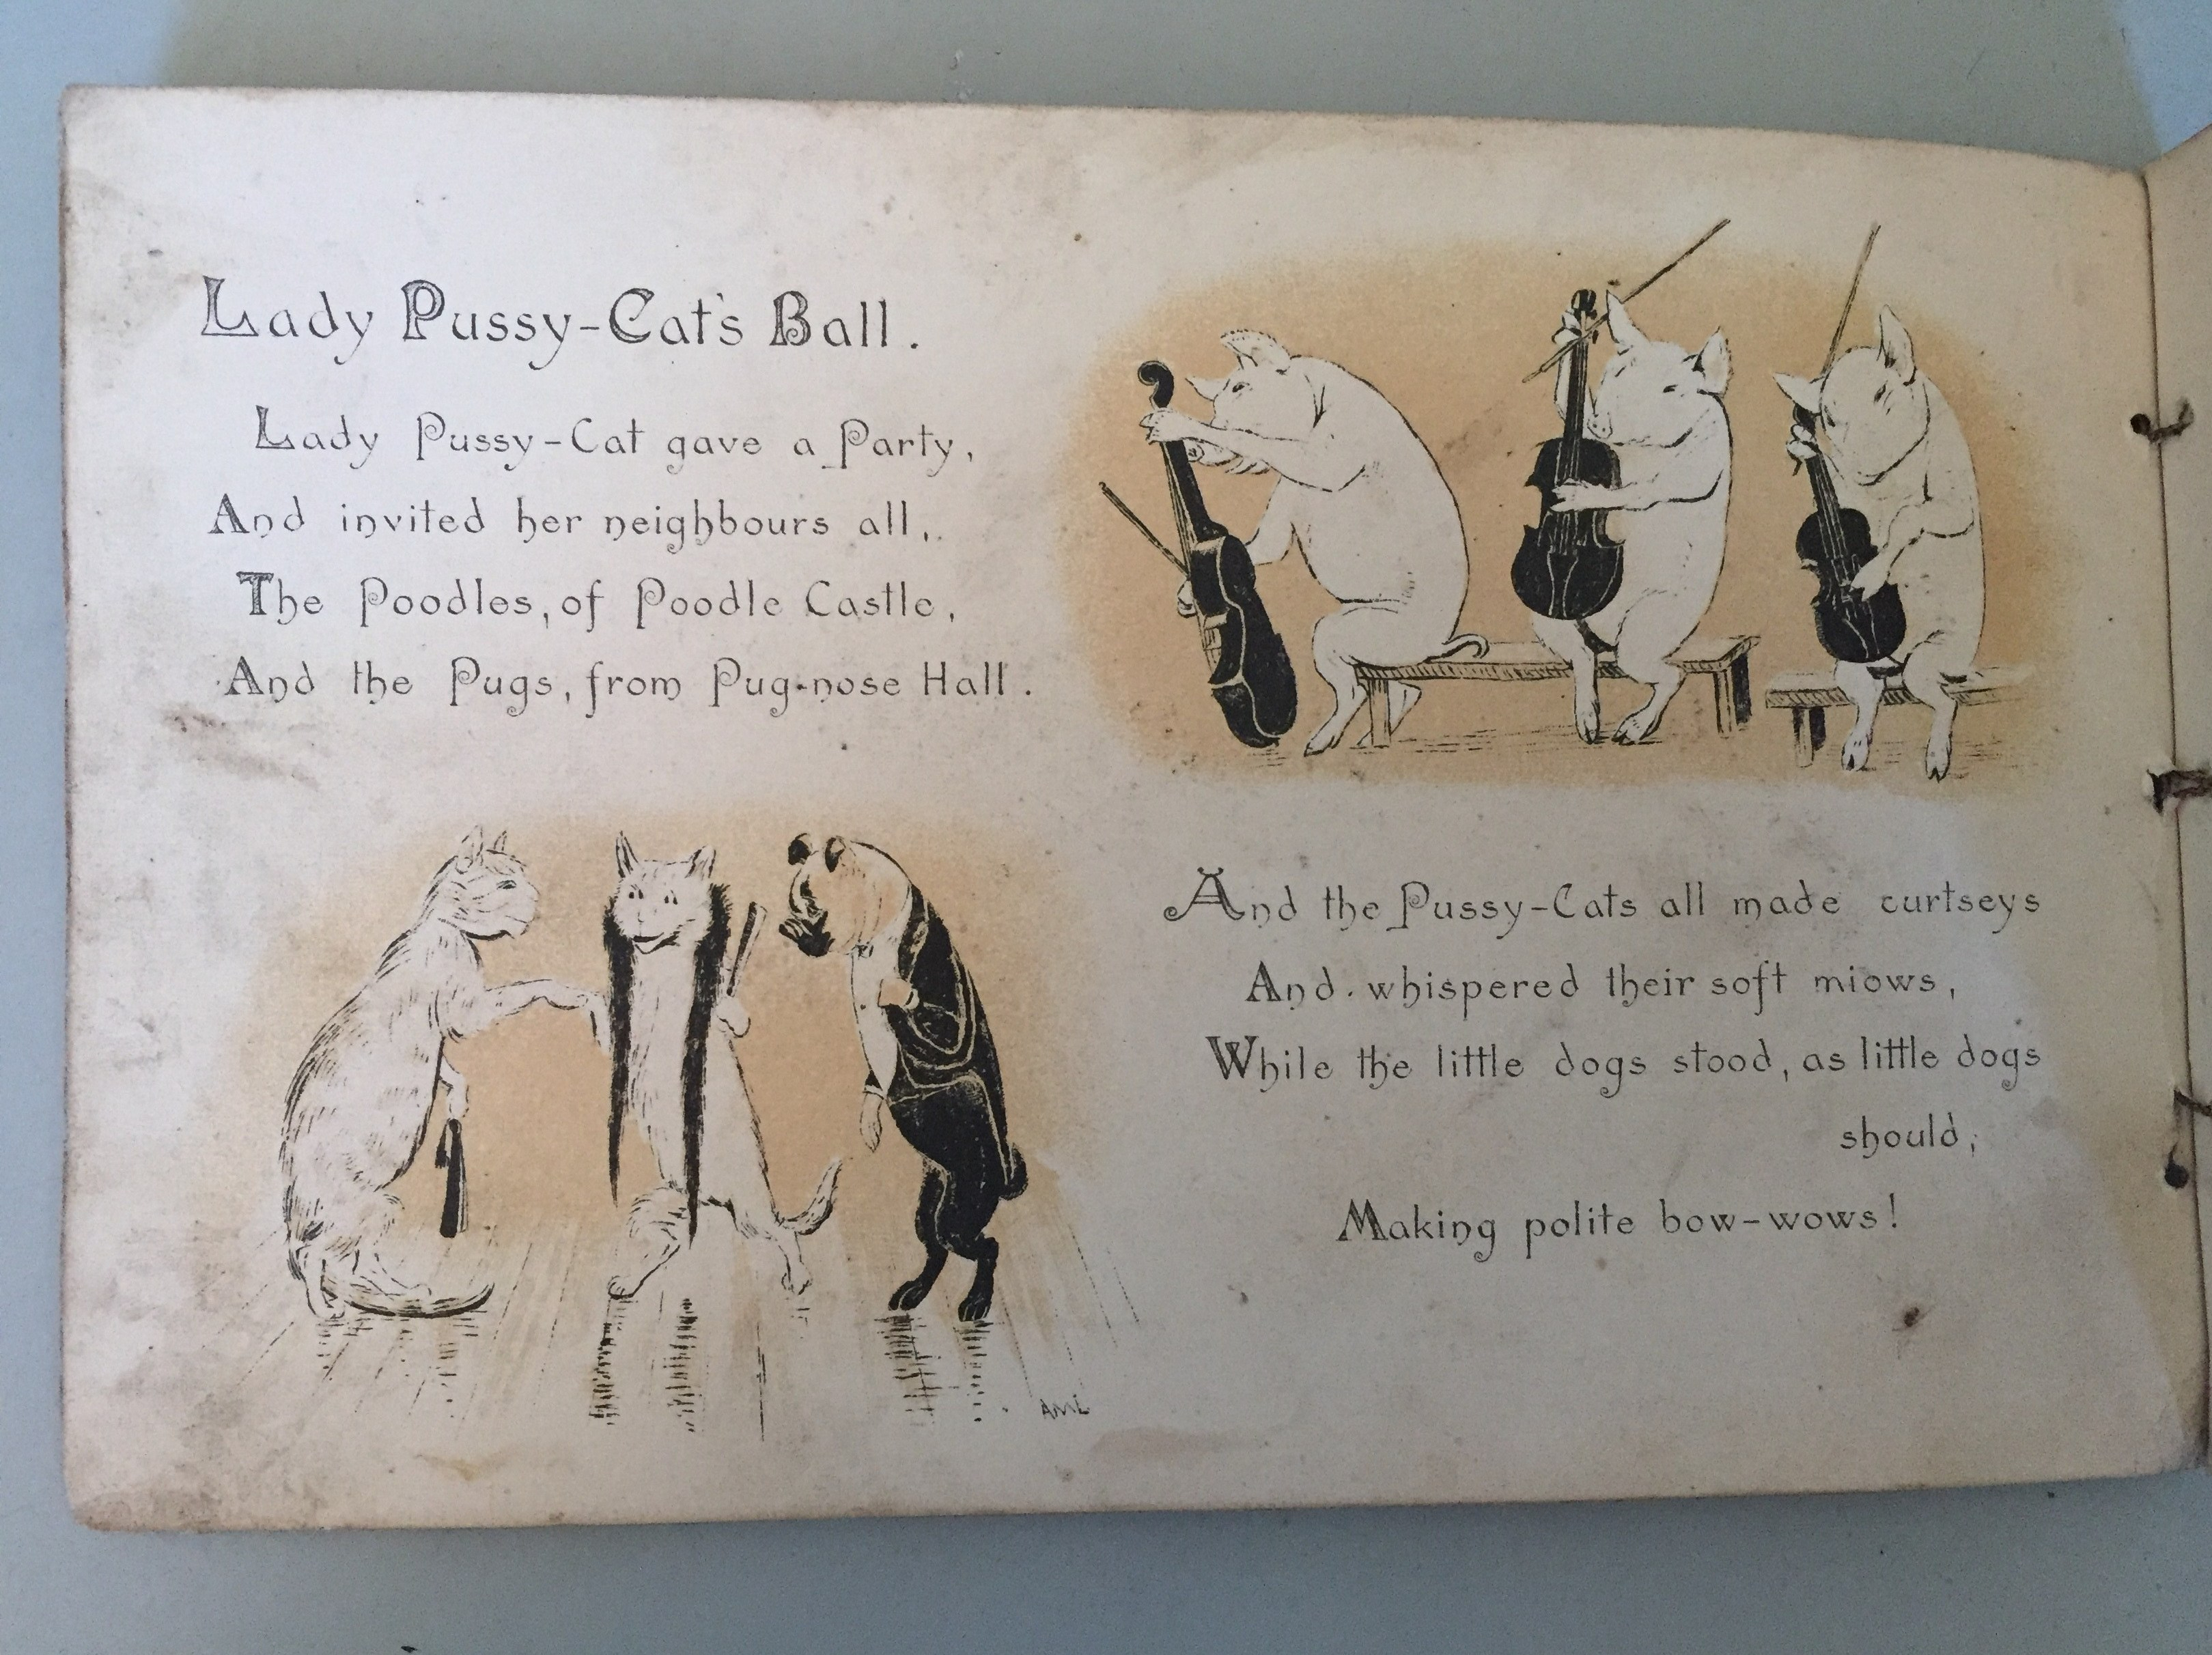 Lady Pussy-Cat's Ball.
Lady Pussy-Cat gave a Party,
And invited her neighbours all,
The Poodles, of Poodle Castle,
And the Pugs, from Pug-nose Hall.
And the Pussy-Cats all made curtseys
And whispered their soft miows,
While the little dogs stood, as little dogs
should,
Making polite bow-wows!